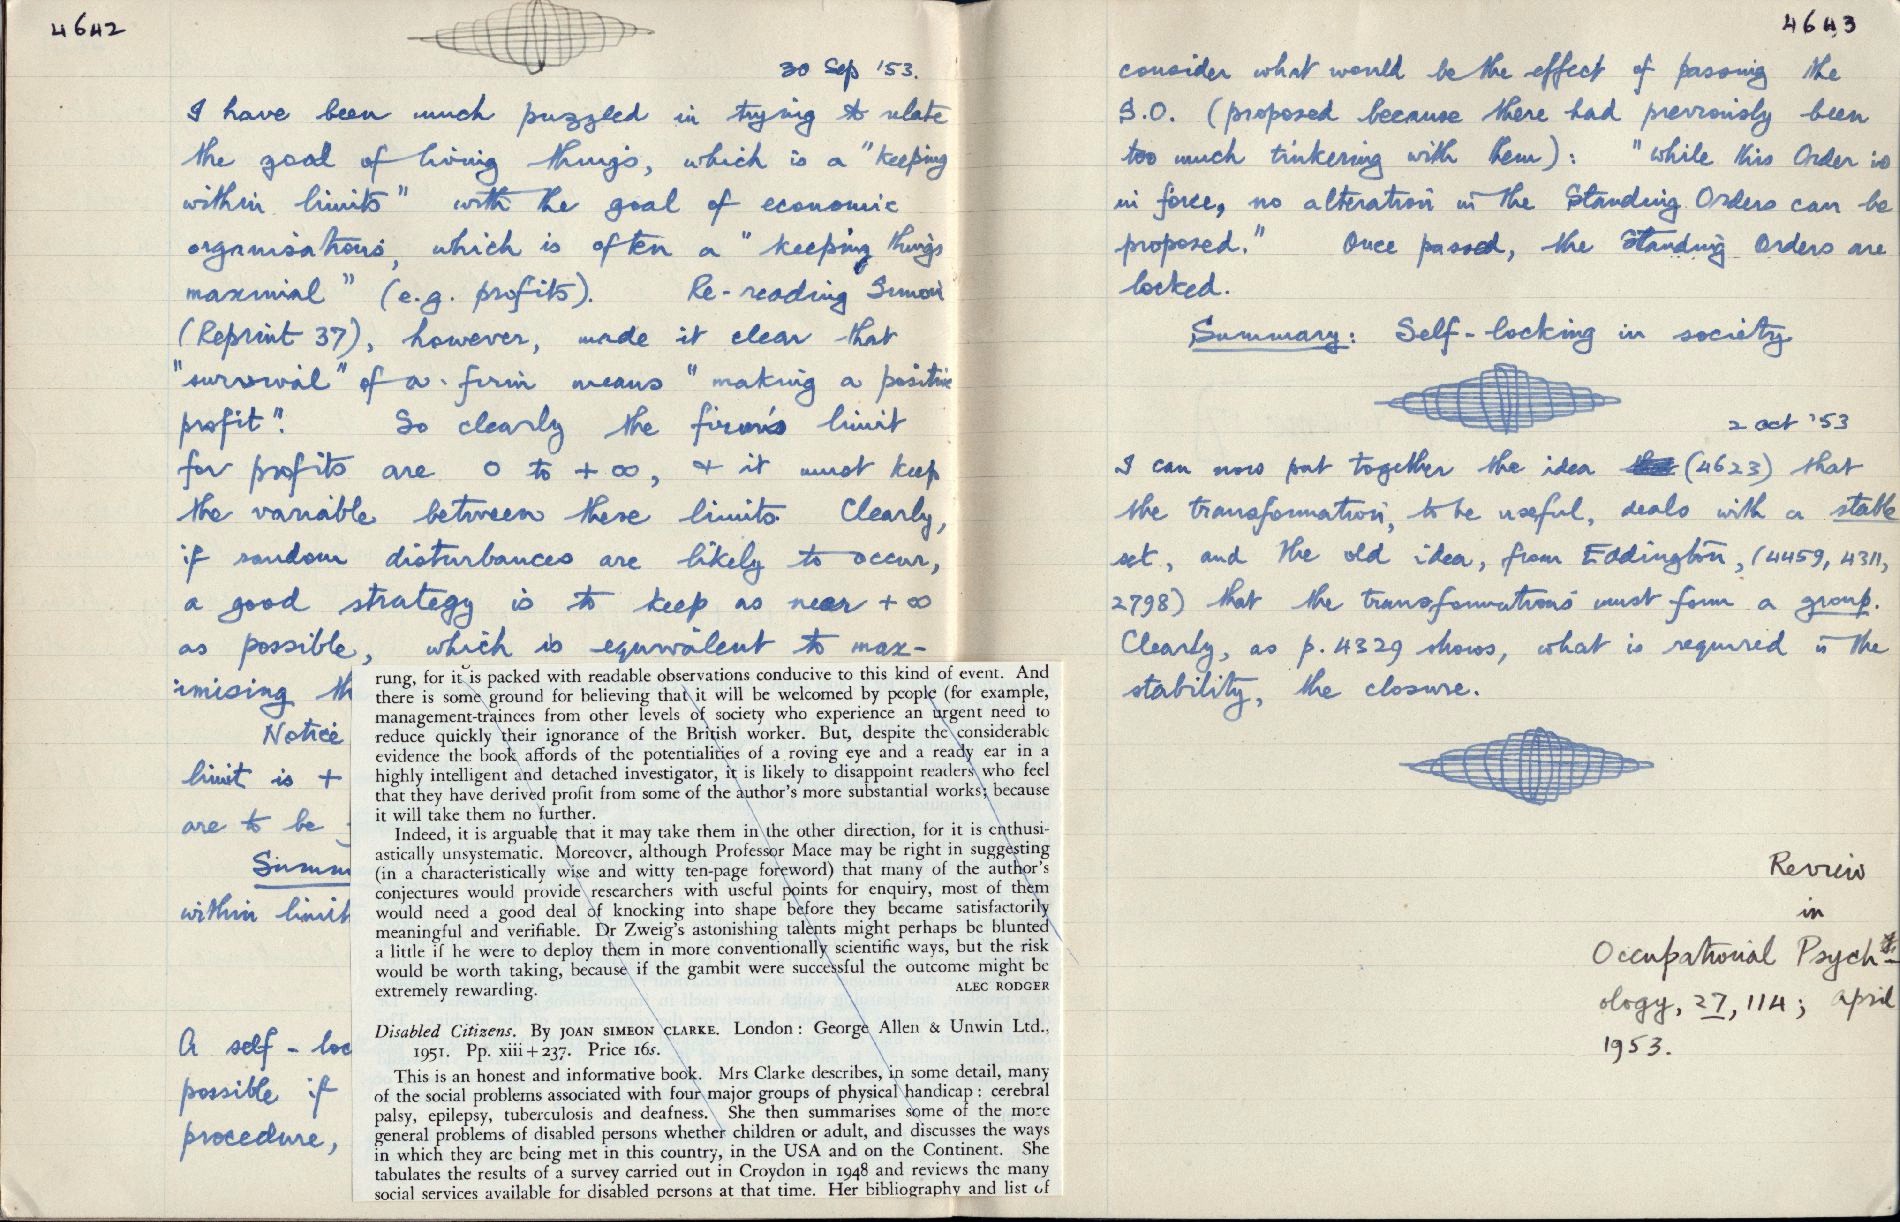 4642
30 Sep '53.
I have been much puzzled in trying to relate
the goal of living things, which is a "keeping
within limits" with the goal of economic
organisations, which is often a "keeping things
maximal" (e.g. profits). Re-reading Simon
(Reprint 37), however, made it clear that
"survival" of a firm means "making a positive
profit". So clearly the firm's limit
for profits are 0 to +∞, & it must keep
the variable between these limits. Clearly,
if random disturbances are likely to occur,
a good strategy is to keep as near +∞
as possible, which is equivalent to max-
imising th
Notice
limit is +
are to be
Summ
within limit
A self-loc
possible if
procedure,
rung, for it is packed with readable observations conducive to this kind of event. And
there is some ground for believing that it will be welcomed by people (for example,
management-trainees from other levels of society who experience an urgent need to
reduce quickly their ignorance of the British worker. But, despite the considerable
evidence the book affords of the potentialities of a roving eye and a ready ear in a
highly intelligent and detached investigator, it is likely to disappoint readers who feel
that they have derived profit from some of the author's more substantial works; because
it will take them no further.
Indeed, it is arguable that it may take them in the other direction, for it is enthusi-
astically unsystematic. Moreover, although Professor Mace may be right in suggesting
(in a characteristically wise and witty ten-page foreword) that many of the author's
conjectures would provide researchers with useful points for enquiry, most of them
would need a good deal of knocking into shape before they became satisfactorily
meaningful and verifiable. Dr Zweig's astonishing talents might perhaps be blunted
a little if he were to deploy them in more conventionally scientific ways, but the risk
would be worth taking, because if the gambit were successful the outcome might be
extremely rewarding. ALEC RODGER
Disabled Citizens. By JOAN SIMEON CLARKE. London: George Allen & Unwin Ltd.,
1951. Pp. xiii+237. Price 16s.
This is an honest and informative book. Mrs Clarke describes, in some detail, many
of the social problems associated with four major groups of physical handicap: cerebral
palsy, epilepsy, tuberculosis and deafness. She then summarises some of the more
general problems of disabled persons whether children or adult, and discusses the ways
in which they are being met in this country, in the USA and on the Continent. She
tabulates the results of a survey carried out in Croydon in 1948 and reviews the many
social services available for disabled persons at that time. Her bibliography and list of
4643
consider what would be the effect of passing the
S.O. (proposed because there had previously been
too much tinkering with them): "while this Order is
in force, no alteration in the Standing Orders can be
proposed." Once passed, the Standing Orders are
locked.
Summary: Self-locking in society
2 Oct '53
I can now put together the idea (4623) that
the transformation, to be useful, deals with a stable
set, and the old idea, from Eddington, (4459, 4311,
2798) that the transformations must form a group.
Clearly, as p. 4329 shows, what is required is the
stability, the closure.
Review
in
Occupational Psych-
ology, 27, 114; April
1953.